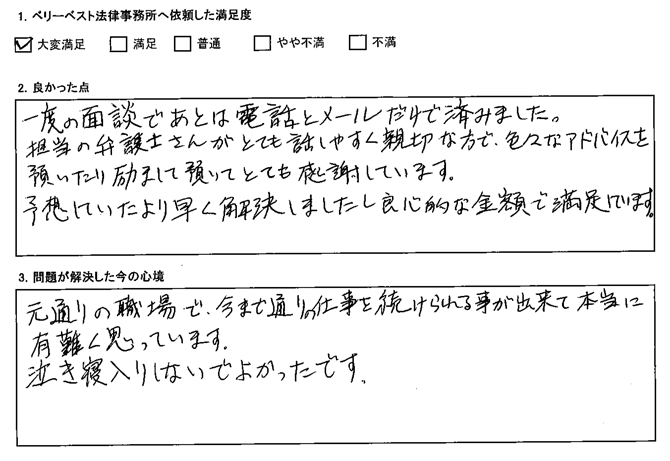 1. ベリーベスト法律事務所へ依頼した満足度
☑ 大変満足 □ 満足 □ 普通 □ やや不満 □ 不満
2. 良かった点
一度の面談であとは電話とメールだけで済みました。
担当の弁護士さんがとても話しやすく親切な方で、色々なアドバイスを
頂いたり励まして頂いてとても感謝しています。
予想していたより早く解決しましたし良心的な金額で満足しています。
3. 問題が解決した今の心境
元通りの職場で、今まで通りの仕事を続けられる事が出来て本当に
有難く思っています。
泣き寝入りしないでよかったです。